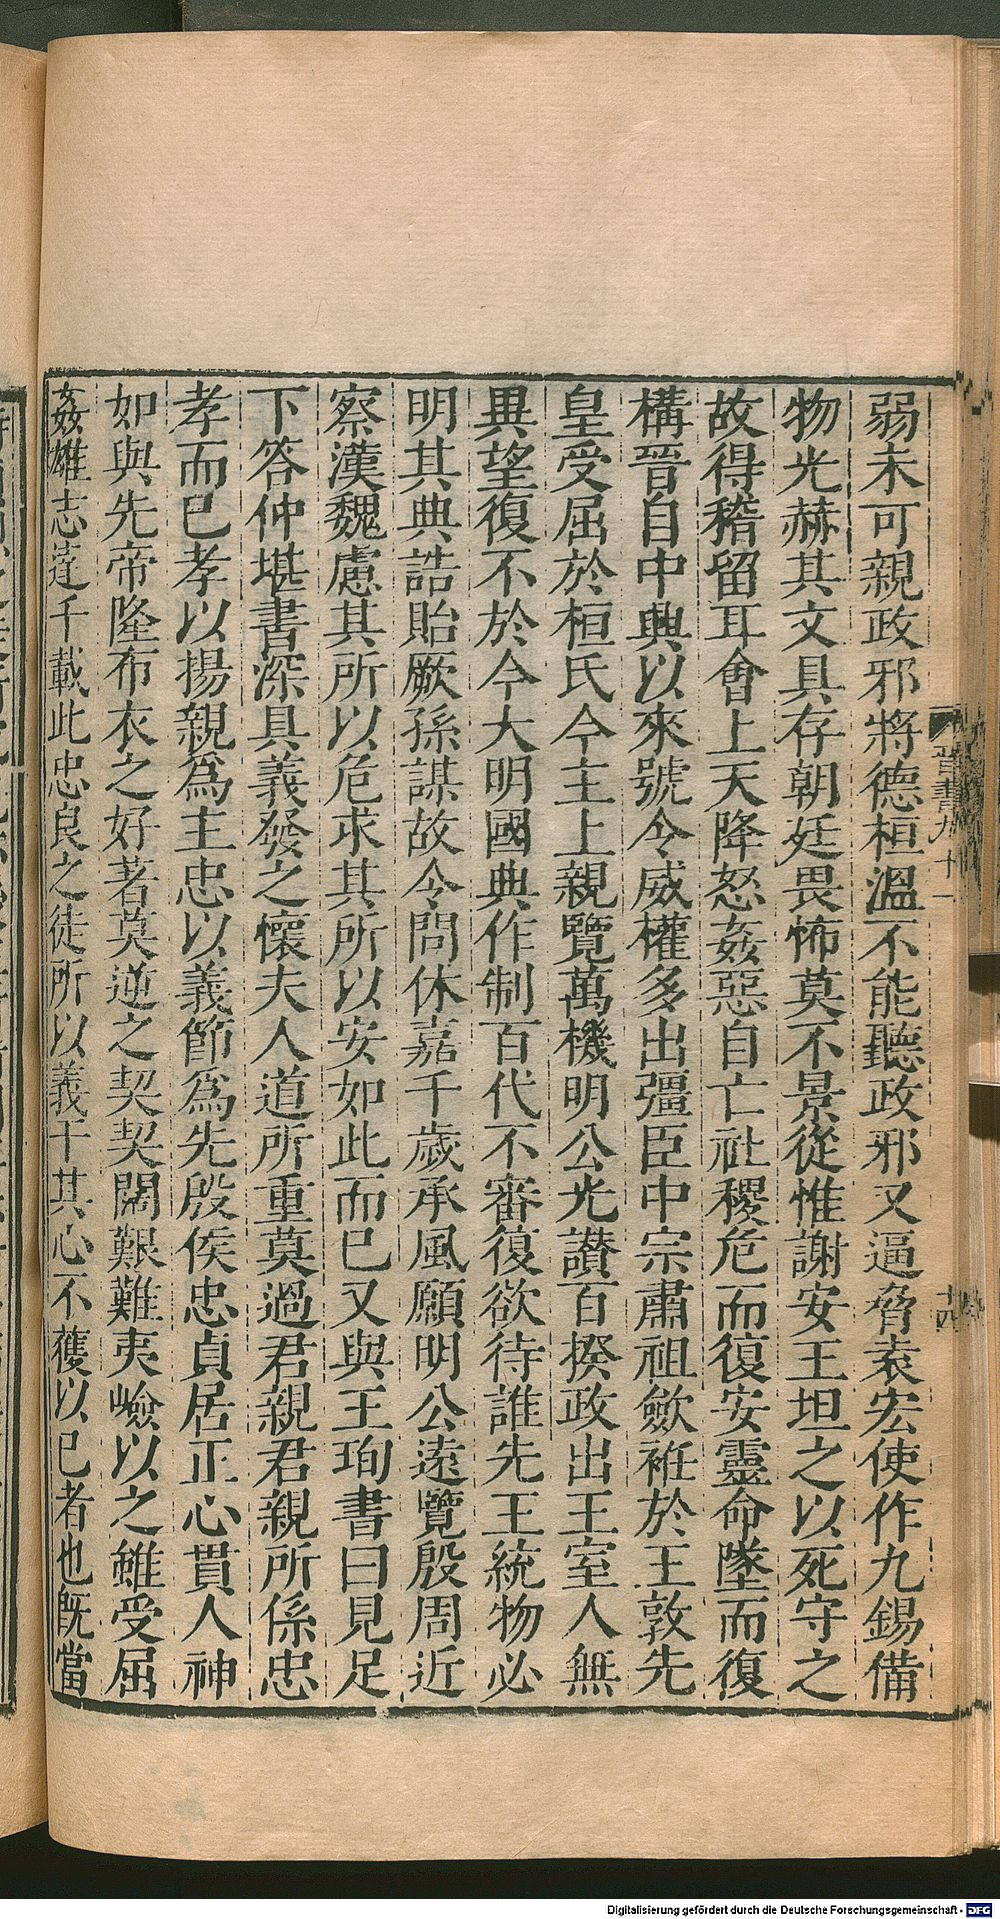 弱未可親政邪將德桓溫不能聽政邪又逼脅袁宏使作九錫備
物光赫其文具存朝廷畏怖莫不景從惟謝安王坦之以死守之
故得稽留耳會上天降怒姦惡自亡社稷危而復安靈命墜而復
構晉自中興以來號令威權多出彊臣中宗肅祖斂衽於王敦先
皇受屈於桓氏今主上親覽萬機明公光讚百揆政出王室人無
異望復不於今大明國典作制百代不審復欲待誰先王統物必
明其典誥貽厥孫謀故令問休嘉千歲承風願明公遠覽殷周近
察漢魏慮其所以危求其所以安如此而已又與王珣書曰見足
下答仲堪書深具義發之懷夫人道所重莫過君親君親所係忠
孝而已孝以揚親爲主忠以義節爲先殷侯忠貞居正心貫人神
如與先帝隆布衣之好著莫逆之契契闊艱難夷嶮以之雖受屈
姦雄志達千載此忠良之徒所以義干其心不獲以已者也既當
晉書九十一
十四
Digitalisierung gefördert durch die Deutsche Forschungsgemeinschaft - DFG